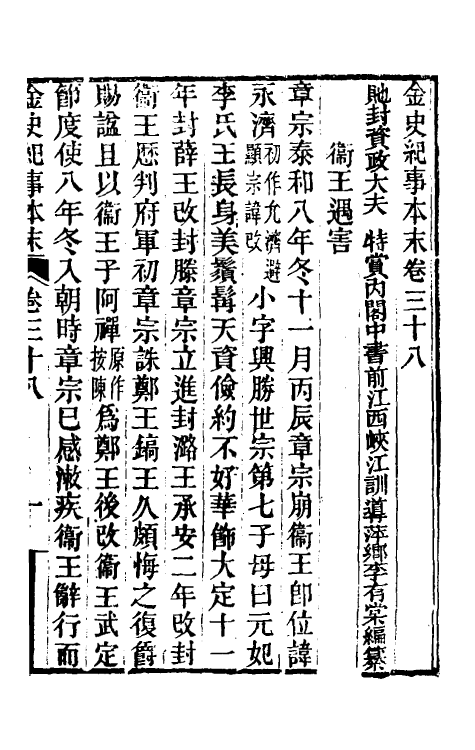 金史紀事本末卷三十八
貤封資政大夫 特賞內閣中書前江西峽江訓導萍鄉李有棠編纂
衞王遇害
章宗泰和八年冬十一月丙辰章宗崩衞王卽位諱
永濟初作允濟避顯宗諱改小字興勝世宗第七子母曰元妃
李氏王長身美鬚髯天資儉約不好華飾大定十一
年封薛王改封滕章宗立進封潞王承安二年改封
衞王歷判府軍初章宗誅鄭王鎬王久頗悔之復爵
賜諡且以衞王子阿禪原作按陳爲鄭王後改衞王武定
節度使八年冬入朝時章宗已感漱疾衞王辭行而
金史紀事本末 卷三十八 一